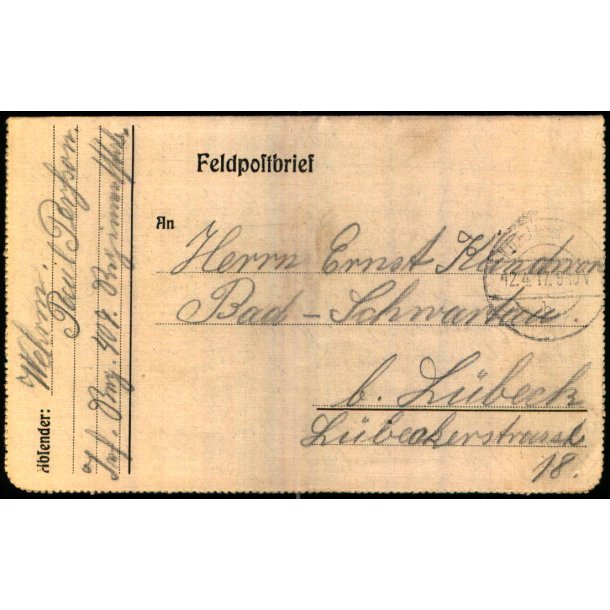 Feldpostbrief
An
Herrn Ernst
Bad-Schwartau.
b. Lübeck
Lübeckerstrasse
18.
Absender: Wehrm.
Paul
Inf. Reg.
12.4.17.